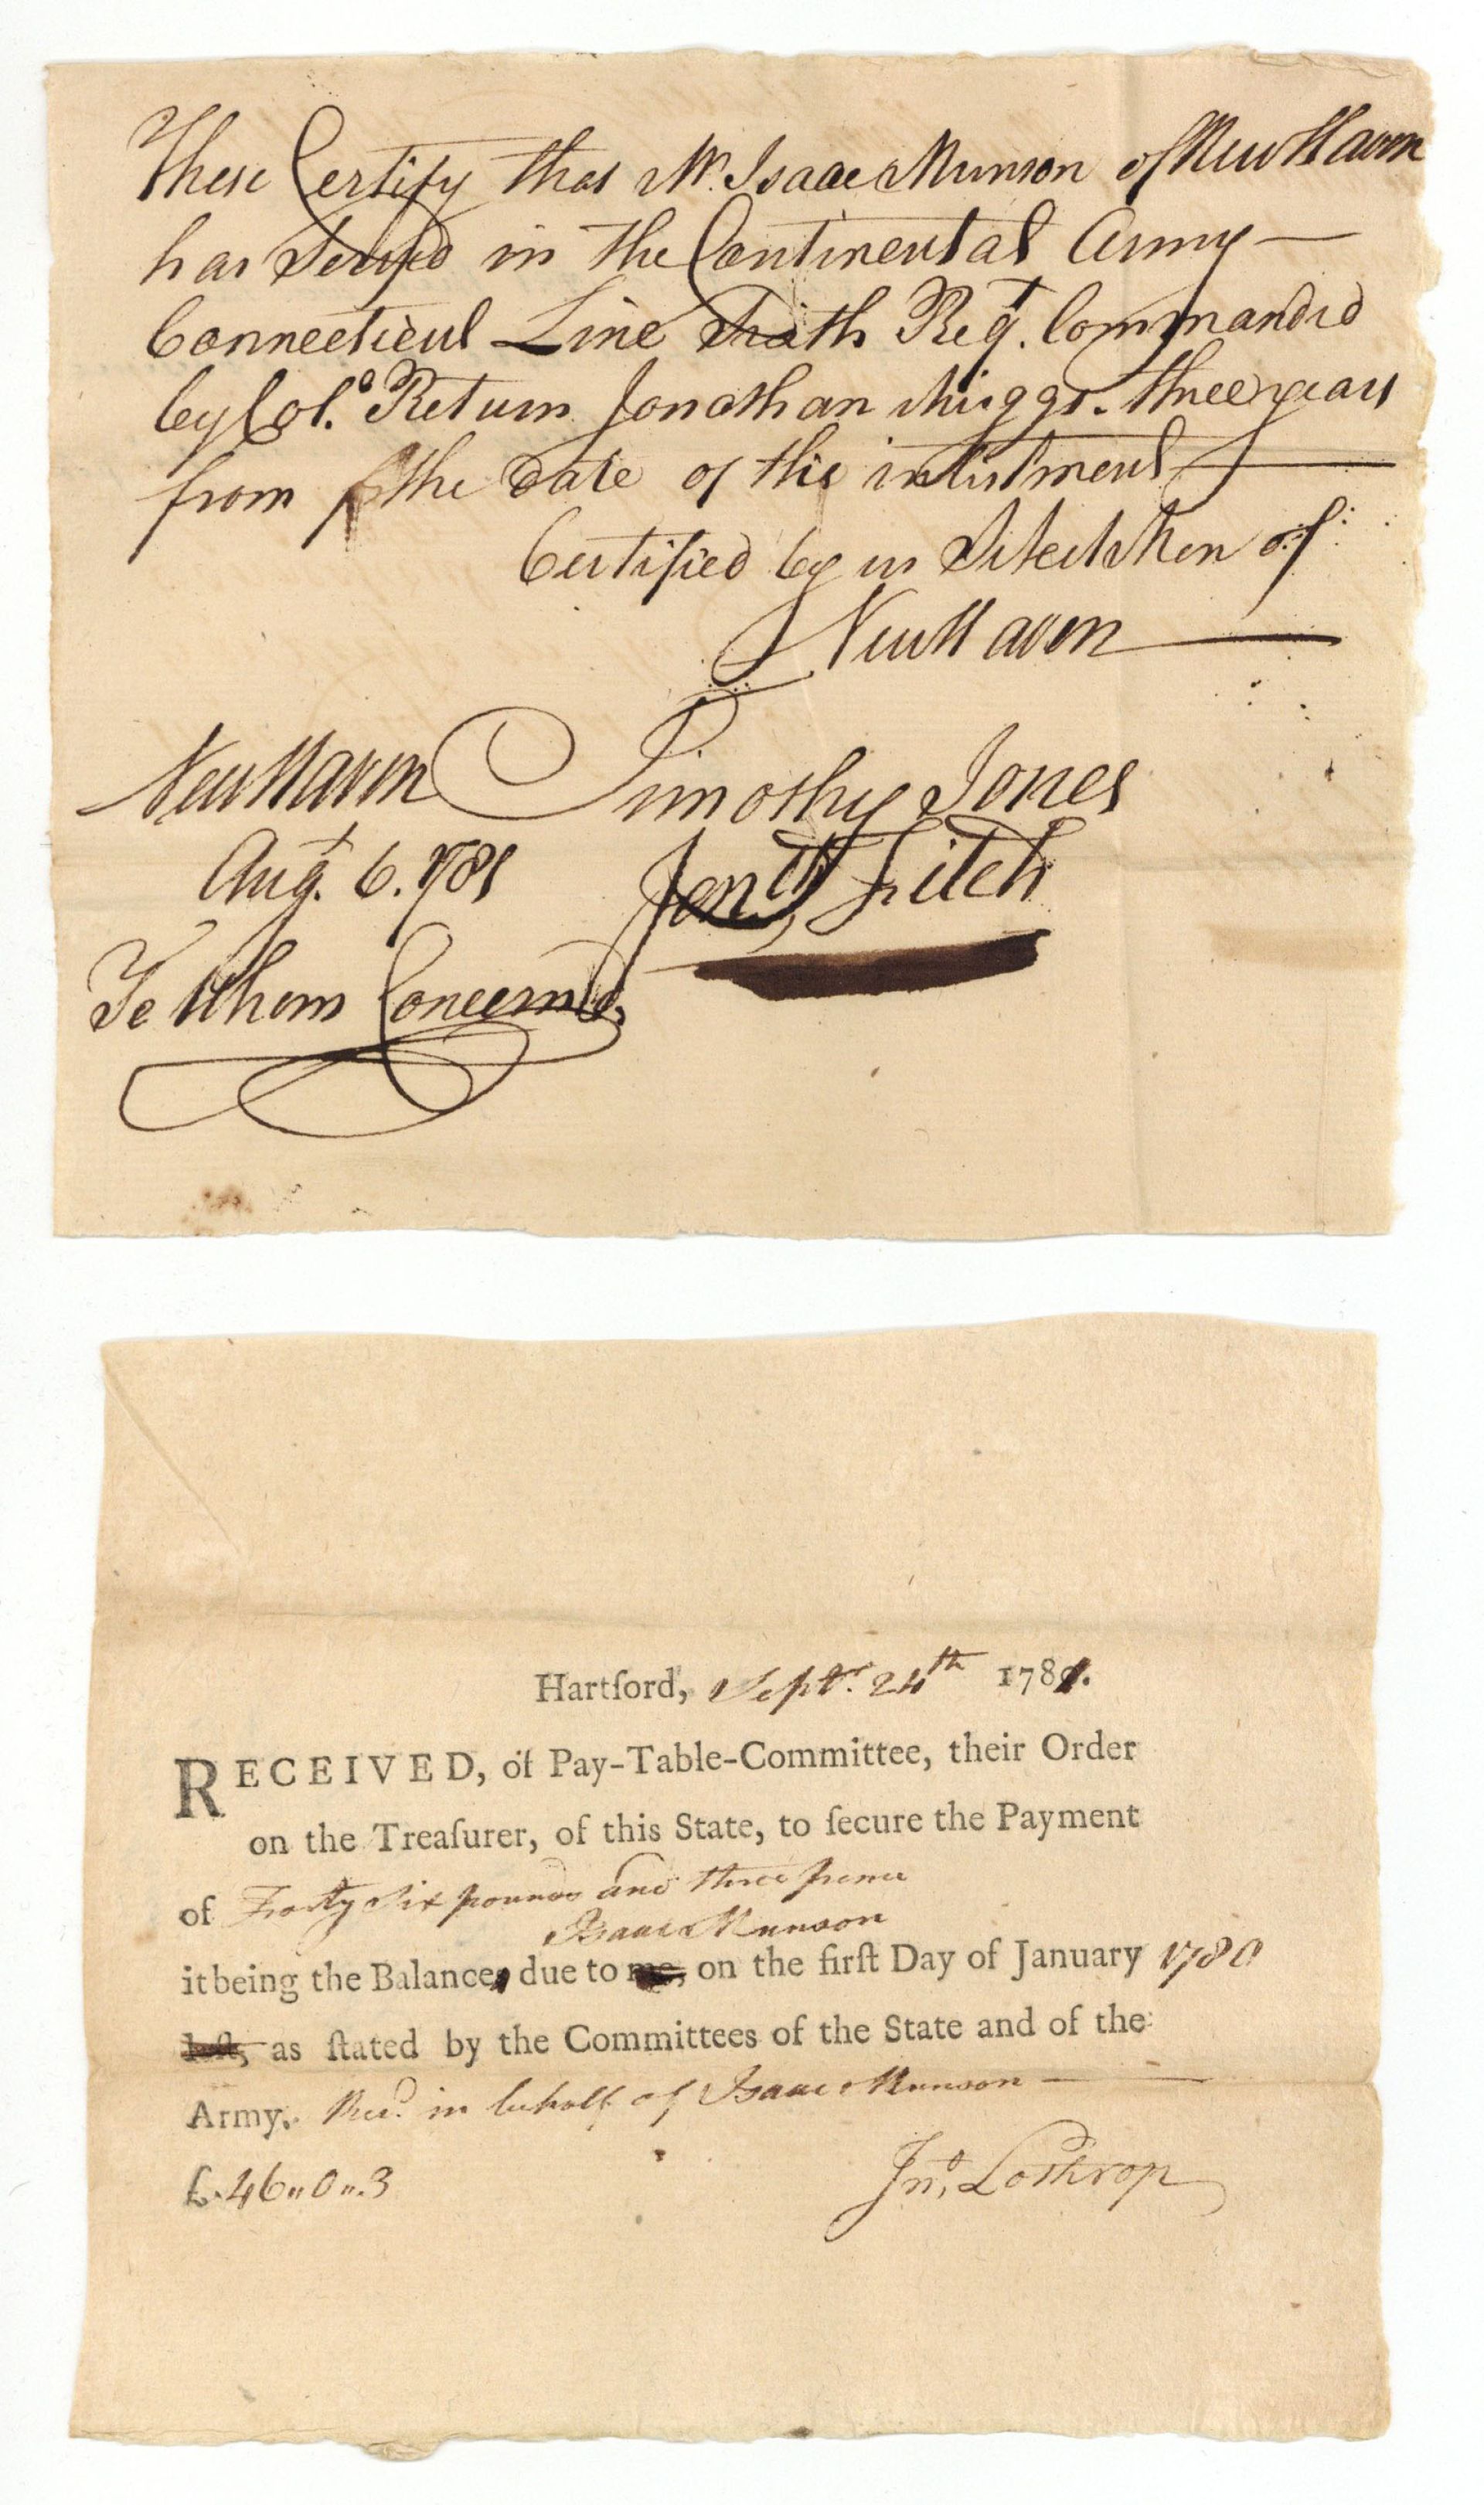 These Certify that Mr. Isaac Munson of New Haven
has Served in the Continental Army —
Connecticut Line Sixth Regt. Commanded
by Colo. Return Jonathan Miggs. three years
from the Date of his inlistment —
Certified by us Selectmen of
New Haven —
New Haven Timothy Jones
Augt. 6. 1781 Jonth. Fitch
To Whom Concernd.
Hartford, Septr. 24th 1781.
RECEIVED, of Pay-Table-Committee, their Order
on the Treaſurer, of this State, to ſecure the Payment
of Forty Six pounds and three pence
Isaac Munson
it being the Balance, due to me, on the firſt Day of January 1780
laſt, as ſtated by the Committees of the State and of the
Army. Recd. in behalf of Isaac Munson —
£. 46 „ 0 „ 3
Jno. Lothrop